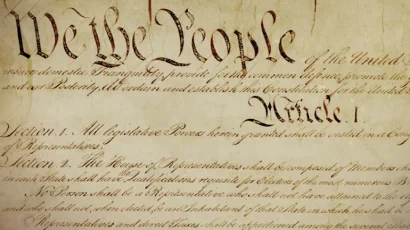 We the People of the United
insure domestic Tranquility, provide for the common defence, promote the
and our Posterity, do ordain and establish this Constitution for the United
Article. I.
Section. 1. All legislative Powers herein granted shall be vested in a Cong
of Representatives.
Section. 2. The House of Representatives shall be composed of Members cho
in each State shall have the Qualifications requisite for Electors of the most numerous B
No Person shall be a Representative who shall not have attained to the
and who shall not, when elected, be an Inhabitant of that State in which he shall be
Representatives and direct Taxes shall be apportioned among the several States